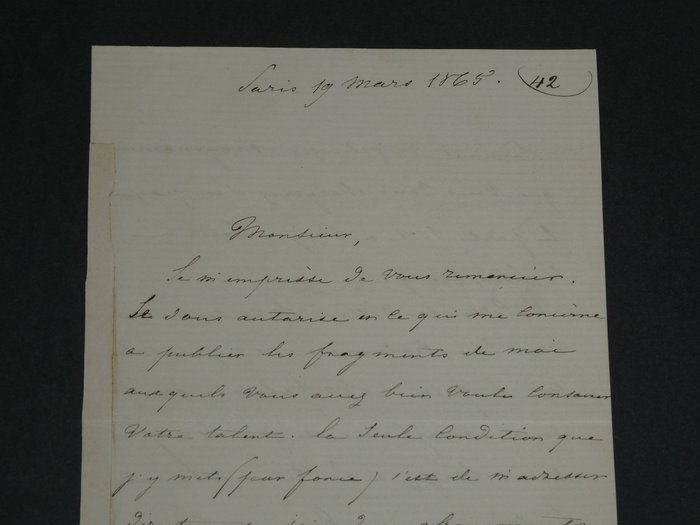 Paris 19 Mars 1865. 42
Monsieur,
Je m'empresse de vous remercier.
Je vous autorise en ce qui me concerne
a publier les fragments de moi
auxquels vous avez bien voulu consacrer
votre talent. la seule condition que
j'y mets (par force) c'est de m'adresser